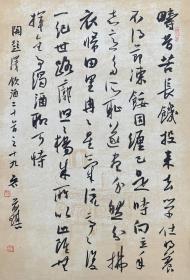 疇昔苦長飢投耒去學仕將養
不得節凍餒固纏己是時向立年
志意多所恥遂盡介然分拂
衣歸田里冉冉星氣流亭亭復
一紀世路廓悠悠楊朱所以止雖無
揮金事濁酒聊可恃
陶彭澤飲酒二十首之十九